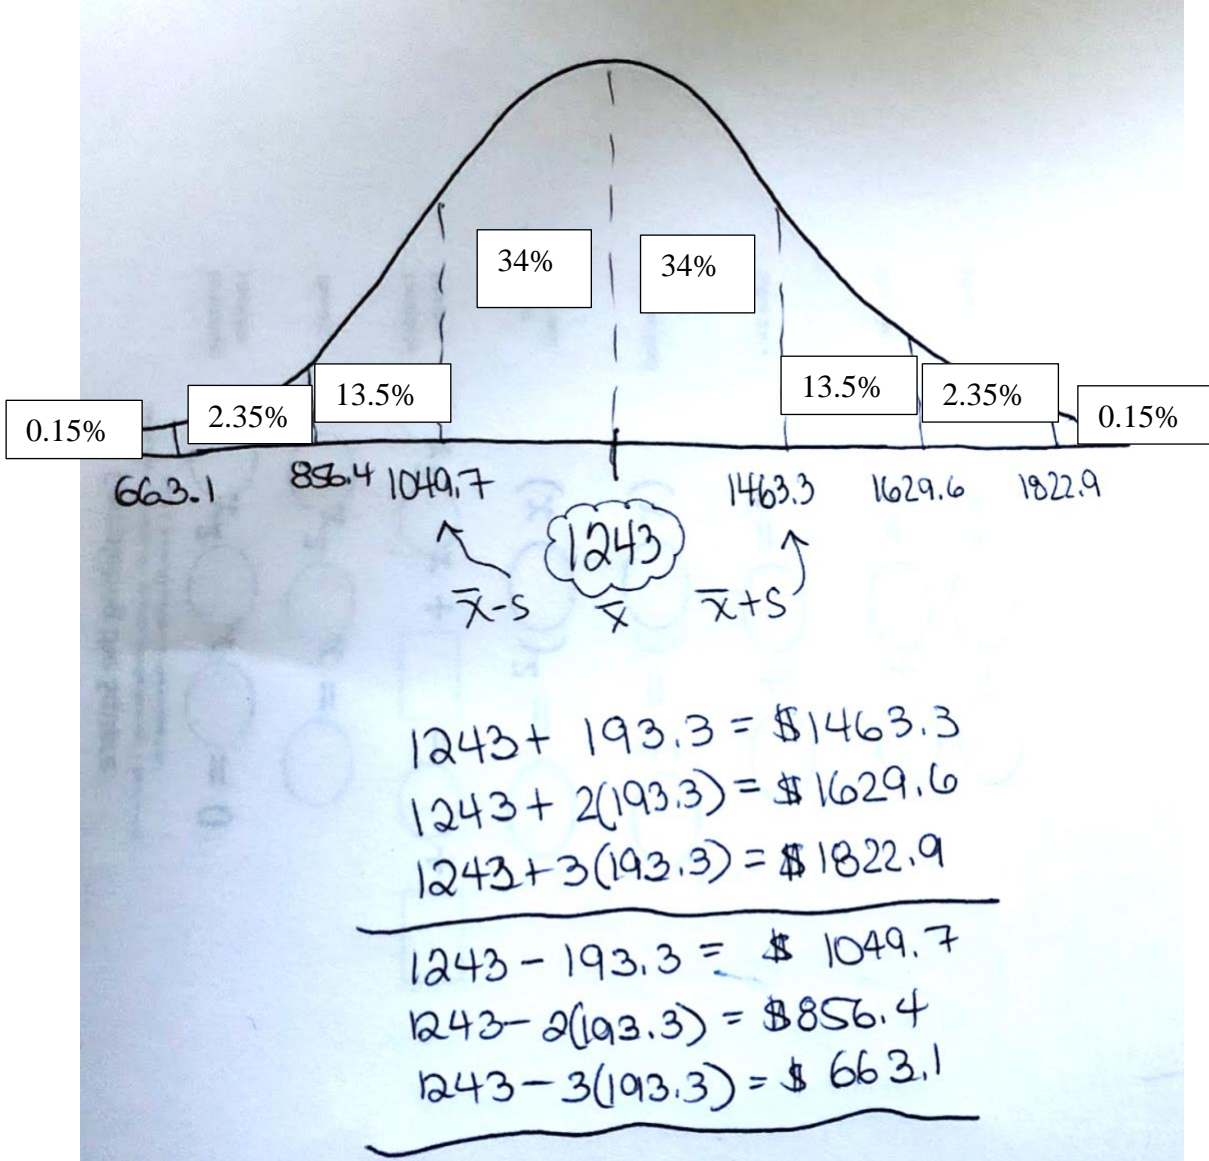 34%
34%
13.5%
13.5%
2.35%
2.35%
0.15%
0.15%
663.1 856.4 1049.7 1463.3 1629.6 1822.9
1243
x̅-S x̅ x̅+S
1243 + 193.3 = $1463.3
1243 + 2(193.3) = $1629.6
1243 + 3(193.3) = $1822.9
1243 - 193.3 = $ 1049.7
1243 - 2(193.3) = $856.4
1243 - 3(193.3) = $ 663.1